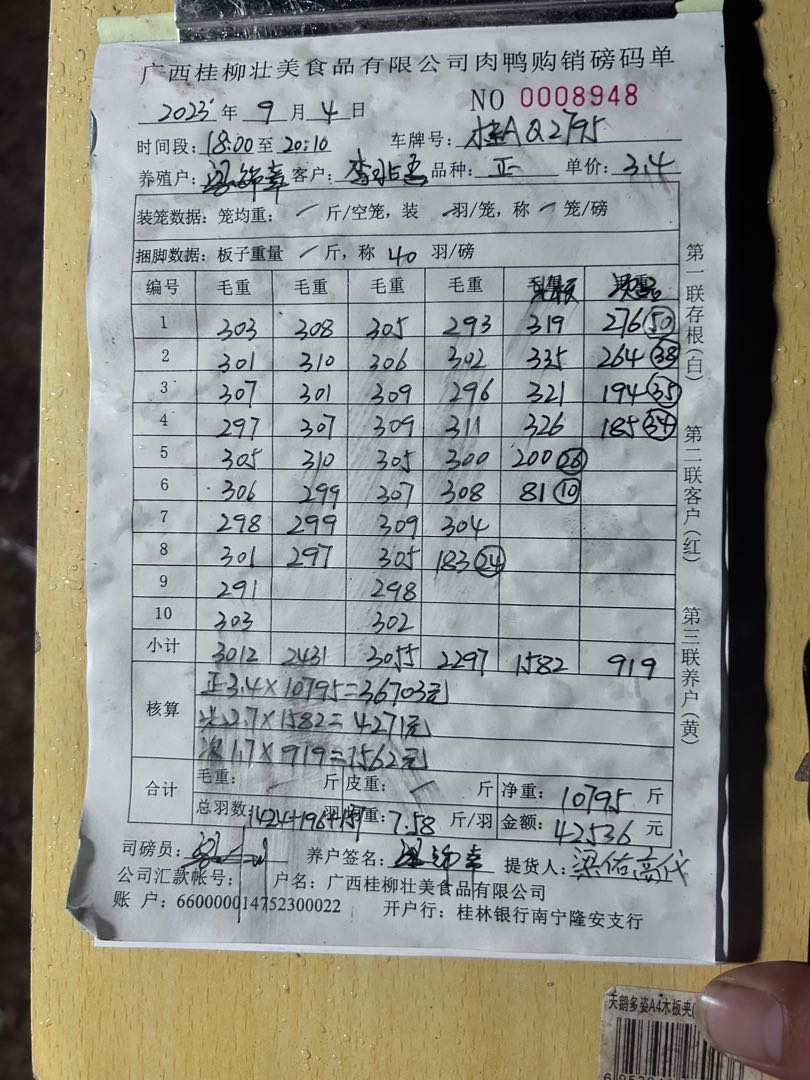 广西桂柳壮美食品有限公司肉鸭购销磅码单
2023年 9 月 4 日 NO 0008948
时间段: 18:00 至 20:10 车牌号: 桂A Q2795
养殖户: 客户: 品种: 正 单价: 3.4
装笼数据: 笼均重: 斤/空笼, 装 羽/笼, 称 笼/磅
捆脚数据: 板子重量 斤, 称 40 羽/磅
编号 毛重 毛重 毛重 毛重
1 303 308 305 293 319 276 50
2 301 310 306 302 335 264 38
3 307 301 309 296 321 194 35
4 297 307 309 311 326 185 34
5 305 310 305 300 200 26
6 306 299 307 308 81 10
7 298 299 309 304
8 301 297 305 183 24
9 291 298
10 303 302
小计 3012 2431 3055 2297 1582 919
核算
正3.4×10795=36703元
2.7×1582=4271元
次1.7×919=1562元
合计 毛重: 斤 皮重: 斤 净重: 10795 斤
总羽数: 1424+196+157 羽 重: 7.58 斤/羽 金额: 42536 元
司磅员: 养户签名: 提货人: 梁佑高代
公司汇款帐号: 户名: 广西桂柳壮美食品有限公司
账 户: 660000014752300022 开户行: 桂林银行南宁隆安支行
第一联存根(白)
第二联客户(红)
第三联养户(黄)
天鹅多姿A4木板夹